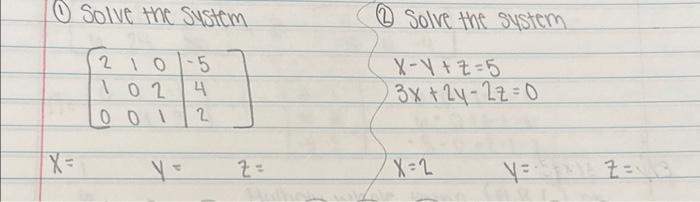 ① Solve the system
2 1 0 | -5
1 0 2 | 4
0 0 1 | 2
X= Y= Z=
② Solve the system
X-Y+Z=5
3X+2Y-2Z=0
X=2 Y= Z=